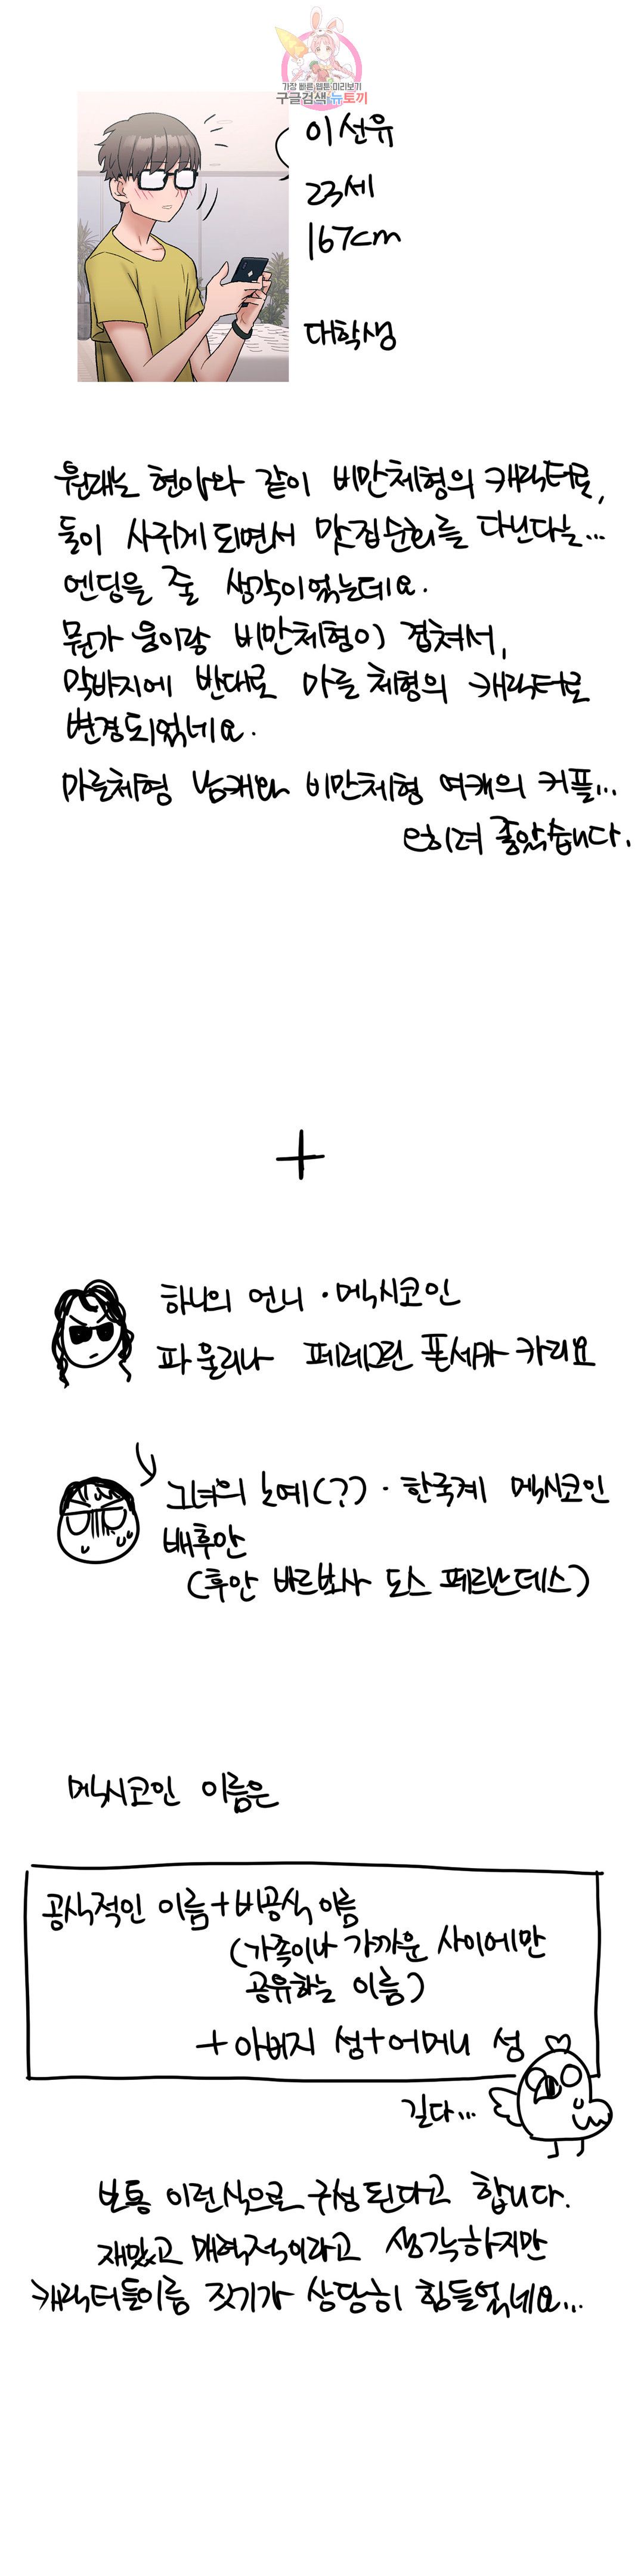 가장 빠른 웹툰 미리보기
구글검색 뉴토끼
이선유
23세
167cm
대학생
원래는 현아와 같이 비만체형의 캐릭터로,
둘이 사귀게 되면서 맛집순회를 다닌다는...
엔딩을 줄 생각이었는데요.
뭔가 웅이랑 비만체형이 겹쳐서,
막바지에 반대로 마른 체형의 캐릭터로
변경되었네요.
마른체형 남캐와 비만체형 여캐의 커플...
오히려 좋았습니다.
+
하나의 언니 · 멕시코인
파울리나 페레그린 폰세카 카리요
그녀의 노예(??) · 한국계 멕시코인
배후안
(후안 바르보사 도스 페르난데스)
멕시코인 이름은
공식적인 이름+비공식 이름
(가족이나 가까운 사이에만
공유하는 이름)
+아버지 성+어머니 성
길다...
보통 이런식으로 구성된다고 합니다.
재밌고 매력적이라고 생각하지만
캐릭터들이름 짓기가 상당히 힘들었네요...